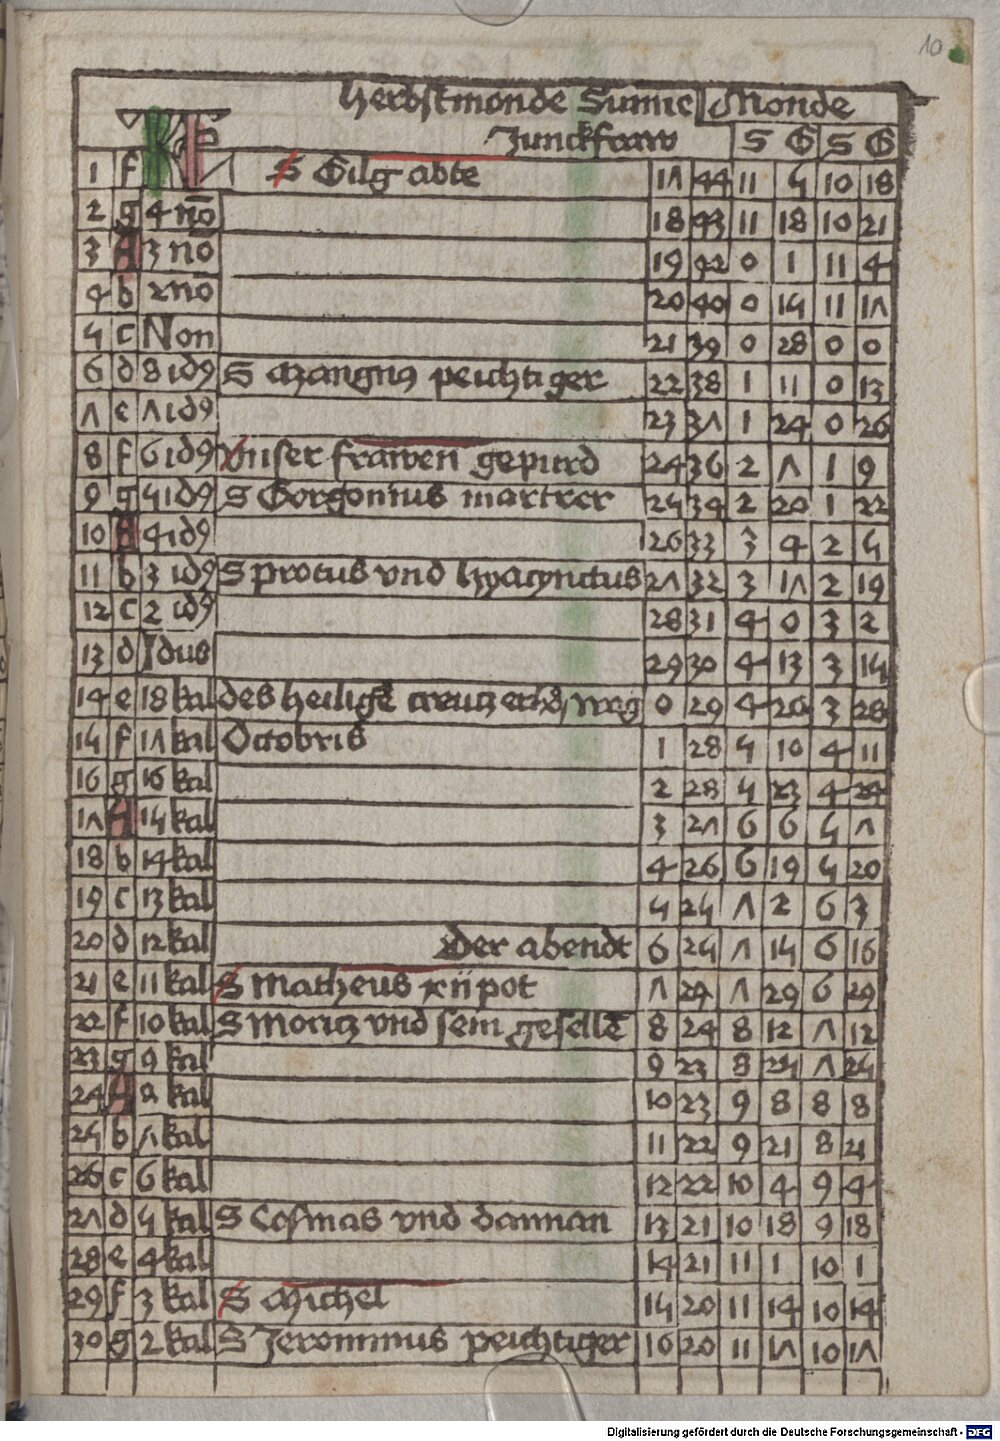 10
Herbstmonde Sunne Monde
Junckfraw S G S G
KL
1 f S Gilg abte 17 44 11 5 10 18
2 g 4 no 18 43 11 18 10 21
3 A 3 no 19 42 0 1 11 4
4 b 2 no 20 40 0 15 11 17
5 c Non 21 39 0 28 0 0
6 d 8 id9 S Mangn9 peichtiger 22 38 1 11 0 13
7 e 7 id9 23 37 1 24 0 26
8 f 6 id9 Vnser frawen gepurd 24 36 2 7 1 9
9 g 5 id9 S Gorgonius martrer 25 34 2 20 1 22
10 A 4 id9 26 33 3 4 2 5
11 b 3 id9 S protus vnd hyacynctus 27 32 3 17 2 19
12 c 2 id9 28 31 4 0 3 2
13 d Idus 29 30 4 13 3 15
14 e 18 kal des heilige creutz erhd, wrg 0 29 4 26 3 28
15 f 17 kal Octobris 1 28 5 10 4 11
16 g 16 kal 2 28 5 23 4 24
17 A 15 kal 3 27 6 6 5 7
18 b 14 kal 4 26 6 19 5 20
19 c 13 kal 5 25 7 2 6 3
20 d 12 kal Der abendt 6 25 7 15 6 16
21 e 11 kal S Matheus xii pot 7 24 7 29 6 29
22 f 10 kal S Moritz vnd sein geselle 8 24 8 12 7 12
23 g 9 kal 9 23 8 25 7 25
24 A 8 kal 10 23 9 8 8 8
25 b 7 kal 11 22 9 21 8 21
26 c 6 kal 12 22 10 4 9 4
27 d 5 kal S Cosmas vnd damian 13 21 10 18 9 18
28 e 4 kal 14 21 11 1 10 1
29 f 3 kal S Michel 15 20 11 14 10 14
30 g 2 kal S Jeronimus peichtiger 16 20 11 17 10 17
Digitalisierung gefördert durch die Deutsche Forschungsgemeinschaft - DFG